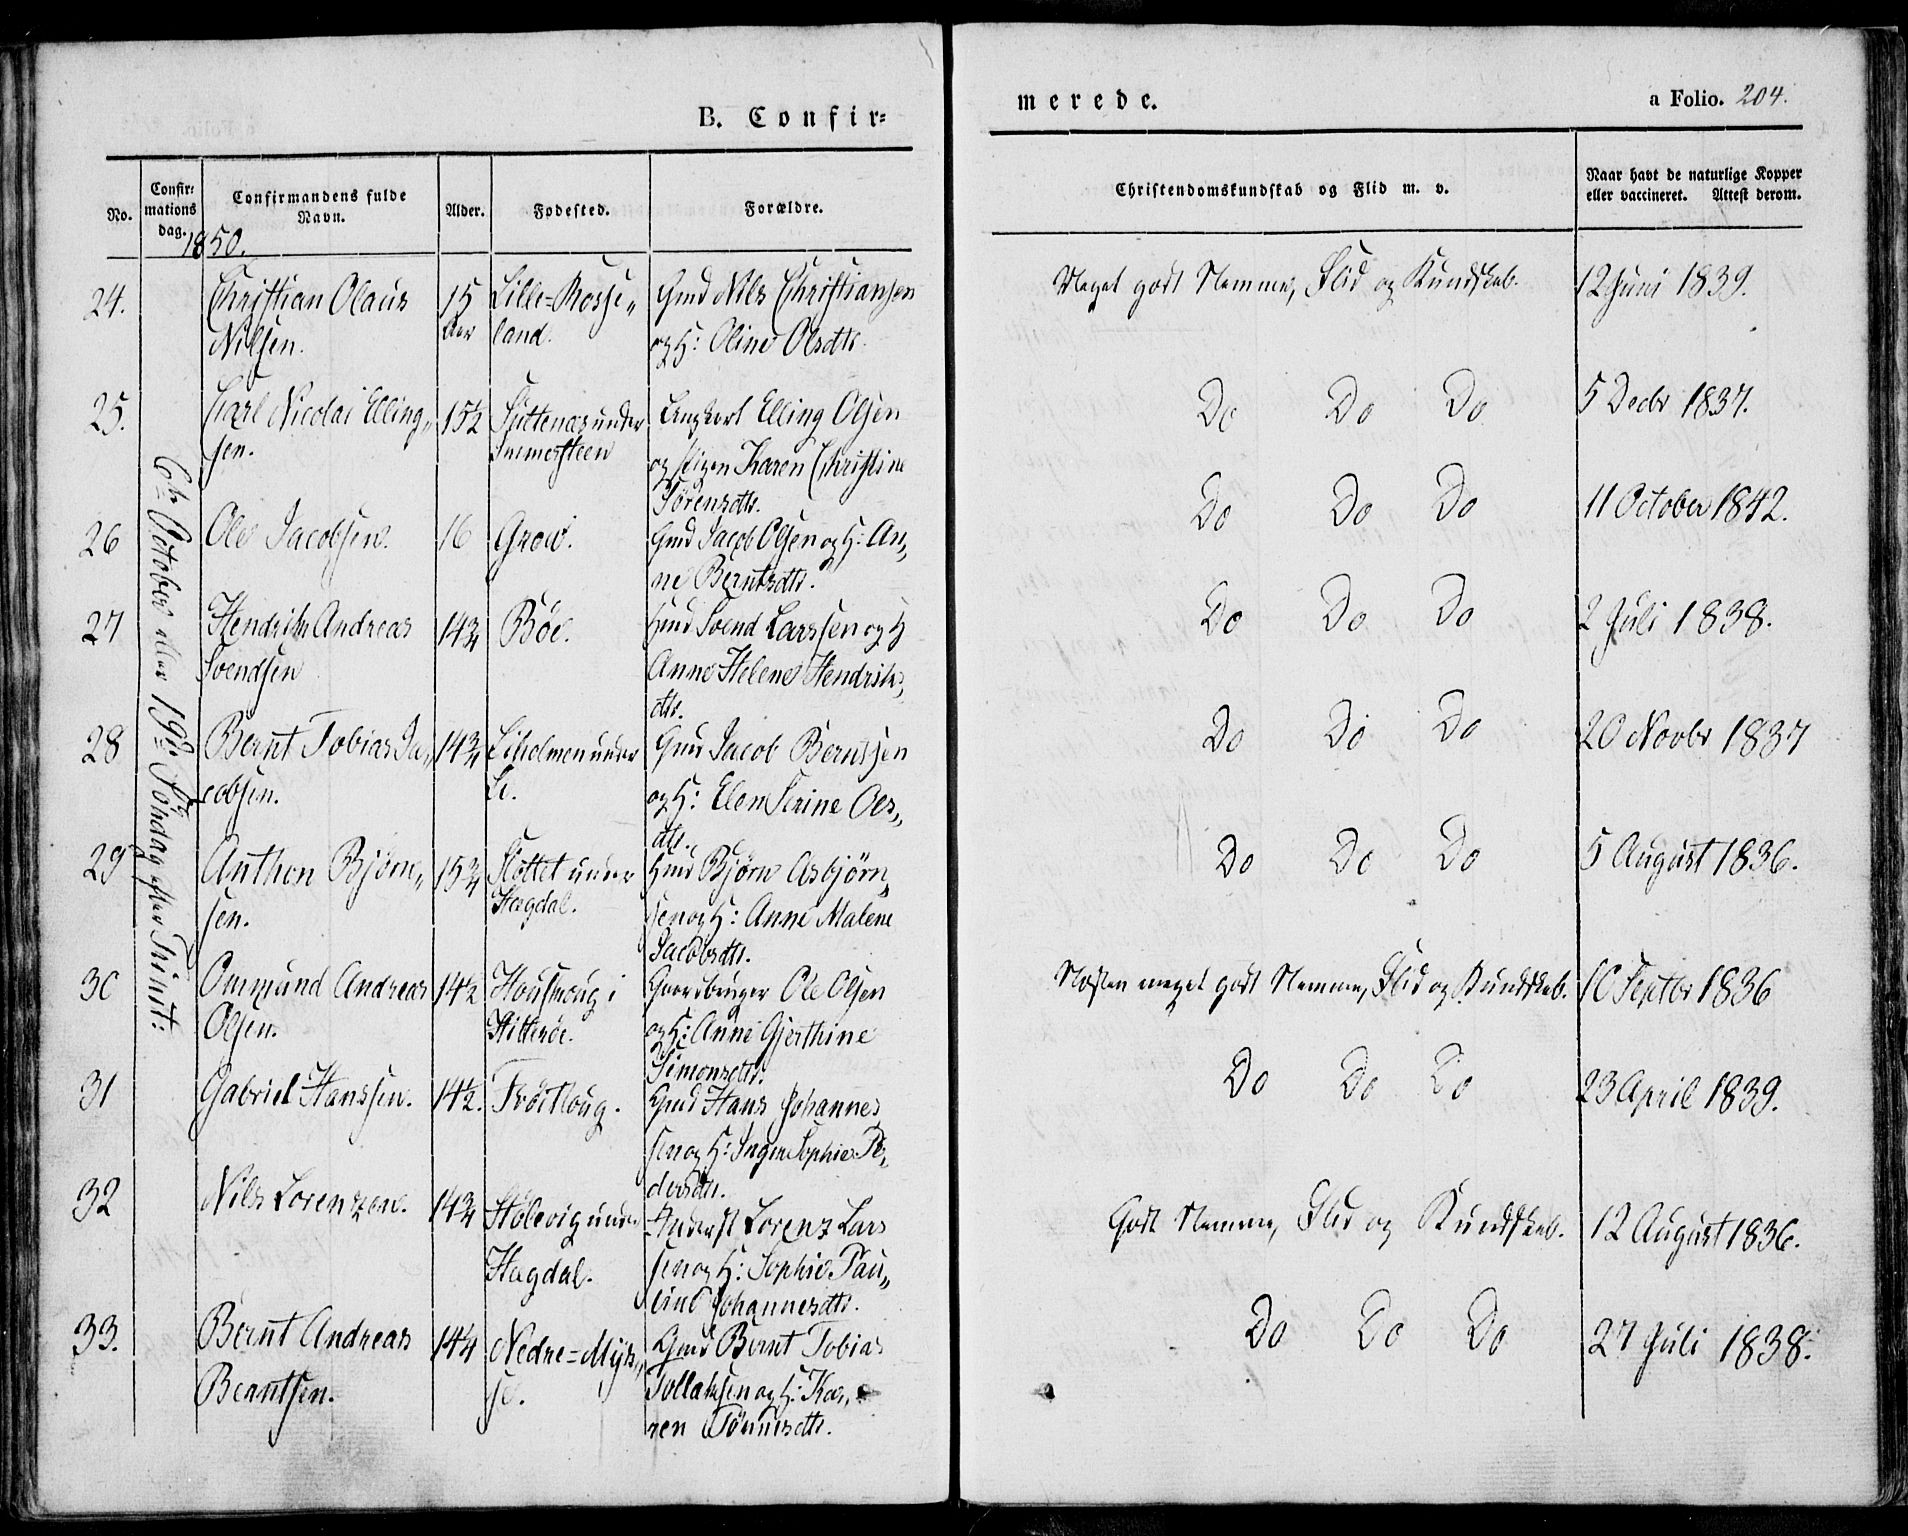 B. Confir=
merede.
a Folio. 204.
No.
Confir=
mations
dag.
Confirmandens fulde
Navn.
Alder.
Fødested.
Forældre.
Christendomskundskab og Flid m. v.
Naar havt de naturlige Kopper
eller vaccineret. Attest derom.
1850.
6te October eller 19de Søndag efter Trinit:
24. Christian Olaus 15 Lille-Rosse„ Gmd Nils Christiansen Meget godt Nemme, Flid og Kundskab. 12 Juni 1839.
Nilsen. Aar land. og H: Oline Olsdtr.
25. Carl Nicolai Elling„ 15½ under Elling Olsen Do Do Do 5 Decbr 1837.
sen. og Pigen Karen Christine
Sørensdtr.
26 Ole Jacobsen. 16 Grow. Gmd Jacob Olsen og H: An„ Do Do Do 11 October 1842.
ne Berntsdtr.
27 Hendrik Andreas 14¾ Böe. Gmd Svend Larssen og H Do Do Do 2 Juli 1838.
Svendsen Anne Helene Hendriks„
dtr.
28 Bernt Tobias Ja„ 14¾ Liholmen under Gmd Jacob Berntsen Do Do Do 20 Novbr 1837
cobsen. Li. og H: Elen Serine Ols„
dtr.
29 Anthon Bjørn„ 15¾ Slottet under Gmd Bjørn Asbjørn„ Do Do Do 5 August 1836.
sen. Hægdal. sen og H: Anne Malene
Jacobsdtr.
30 Ommund Andreas 14½ Housmoug i Gaardbruger Ole Olsen Næsten meget godt Nemme, Flid og Kundskab. 10 Septbr 1836
Olsen. Hitterøe. og H: Anne Gjerthine
Simonsdtr.
31 Gabriel Hanssen. 14½. Trøitloug. Gmd Hans Johannes Do Do Do 23 April 1839.
sen og H: Ingen Sophie Pe„
dersdtr.
32 Nils Lorenzen. 14¾ Stølevig under Lorenz Lars Godt Nemme, Flid og Kundskab. 12 August 1836.
Hægdal. sen og H: Sophie Pau„
line Johannesdtr.
33. Bernt Andreas 14¼ Nedre=Mys„ Gmd Bernt Tobias Do Do Do 27 Juli 1838.
Berntsen. se. Tollaksen og H: Ka„
ren Tønnesdtr.